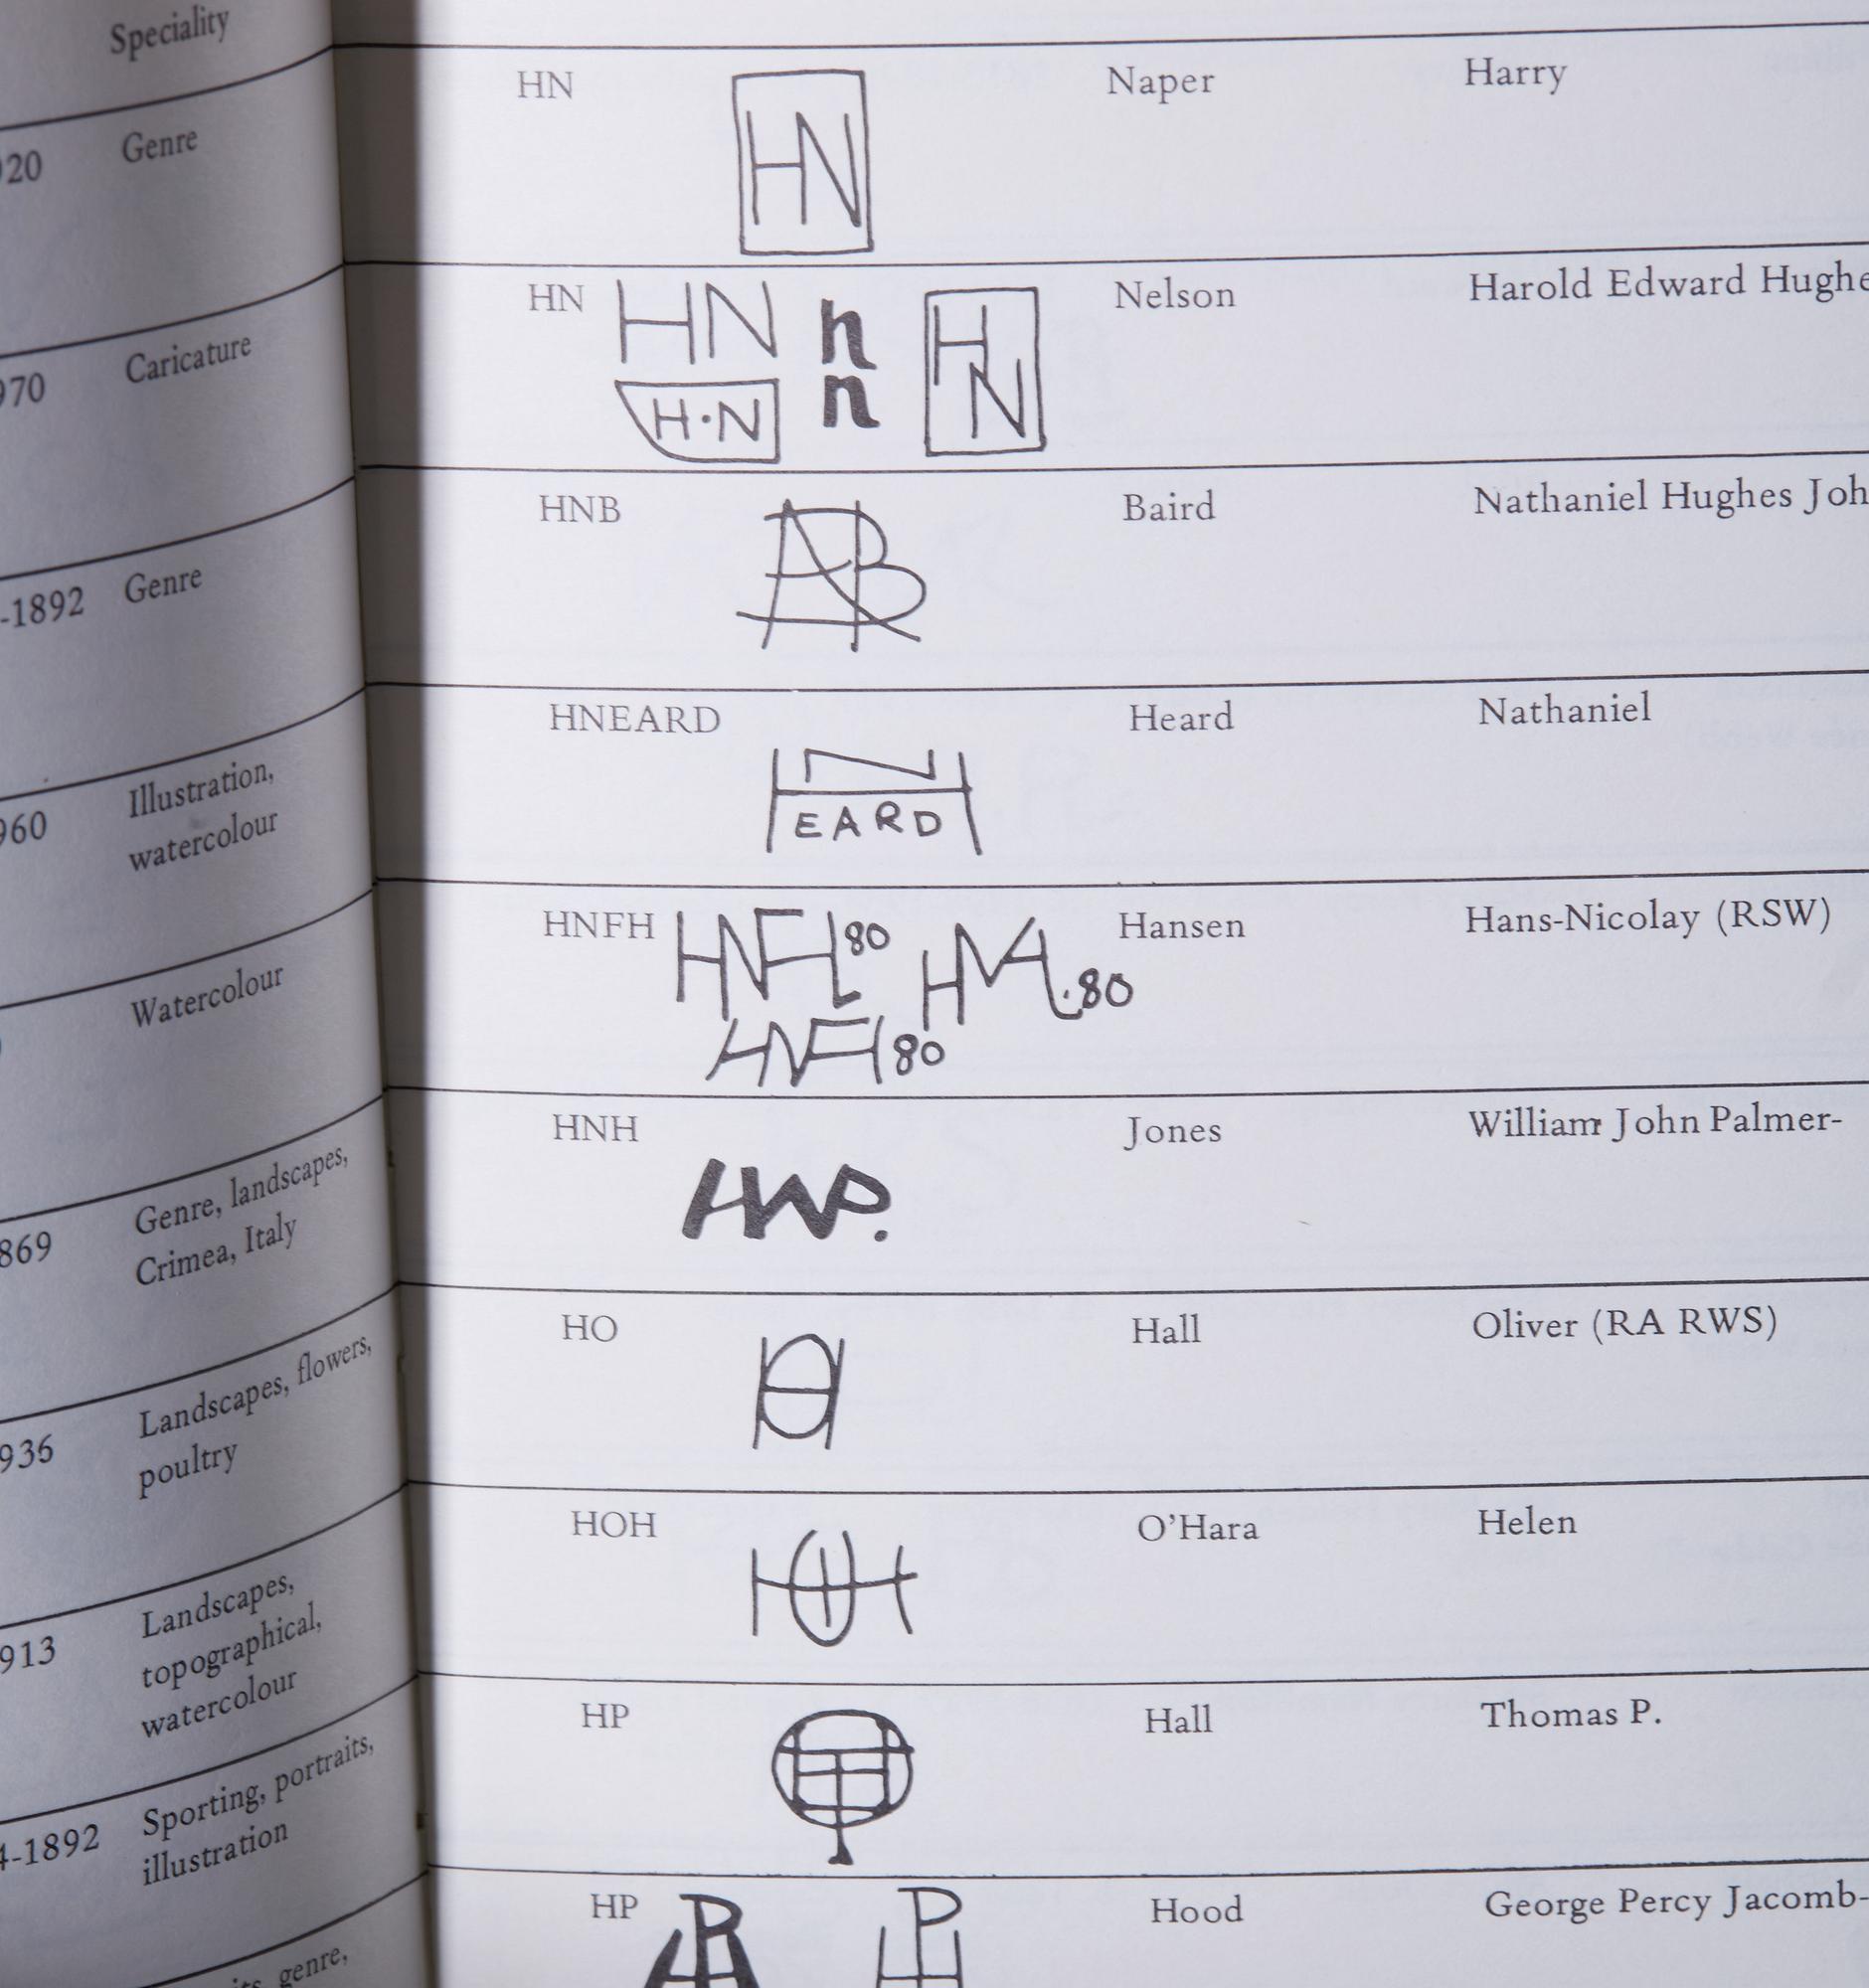 Speciality
20 Genre
970 Caricature
-1892 Genre
960 Illustration,
watercolour
Watercolour
869 Genre, landscapes,
Crimea, Italy
936 Landscapes, flowers,
poultry
913 Landscapes,
topographical,
watercolour
4-1892 Sporting, portraits,
illustration
genre,
HN HN Naper Harry
HN HN n Nelson Harold Edward Hughe
H·N n HN
HNB Baird Nathaniel Hughes Joh
HNEARD Heard Nathaniel
HN
EARD
HNFH HNFH 80 Hansen Hans-Nicolay (RSW)
.80
HNFH 80
HNH Jones William John Palmer-
HO HO Hall Oliver (RA RWS)
HOH HOH O'Hara Helen
HP Hall Thomas P.
HP HP Hood George Percy Jacomb-